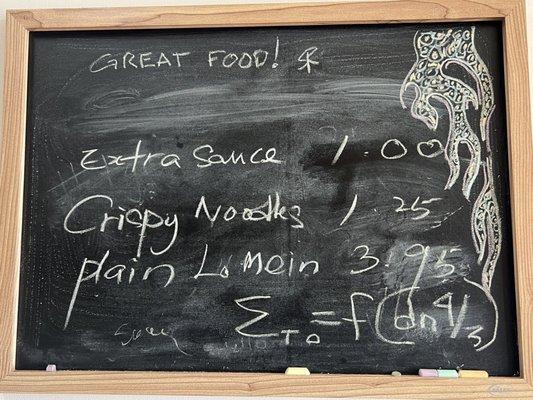 GREAT FOOD!
Extra Sauce 1.00
Crispy Noodles 1.25
plain Lo Mein 3.95